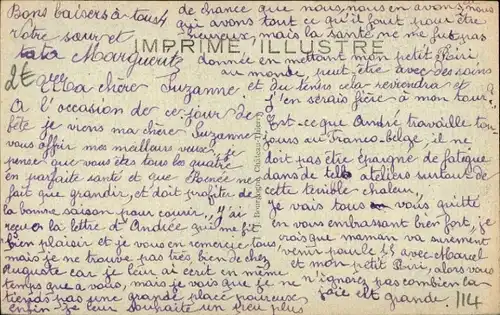 Bons baisers à tous
votre sœur et
tata Marguerite
IMPRIMÉ ILLUSTRÉ
2€
Ma chère Suzanne
A l'occasion de ce jour de
fête je viens ma chère Suzanne
vous offrir mes meilleurs vœux, je
pense que vous êtes tous les quatre
en parfaite santé et que Renée ne
fait que grandir, et doit profiter de
la bonne saison pour courir, j'ai
reçu la lettre d'Andrée qui me fit
bien plaisir et je vous en remercie tous,
mais je ne trouve pas très bien de chez
Auguste car je leur ai écrit en même
temps que a vous, mais je vois que je ne
tiendrais pas une grande place
enfin je leur souhaite un peu plus
de chance que nous, nous en avons, nous
qui avons tout ce qu'il faut pour être
heureux, mais la santé ne me fut pas
donnée en mettant mon petit
au monde, peut être avec des soins
et du temps cela reviendra et
j'en serais fière à mon tour
Est-ce que André travaille tou
jours au Franco-belge, il ne
doit pas être épargné de fatigue
dans de tels ateliers surtout de
cette terrible chaleur,
je vais tous vous quitter
en vous embrassant bien fort, je
crois que maman va surement
venir pour le 15 avec Marcel
et mon petit, alors vous
n'ignorez pas combien la
joie est grande.
114
Bourgogne, Château-Thierry